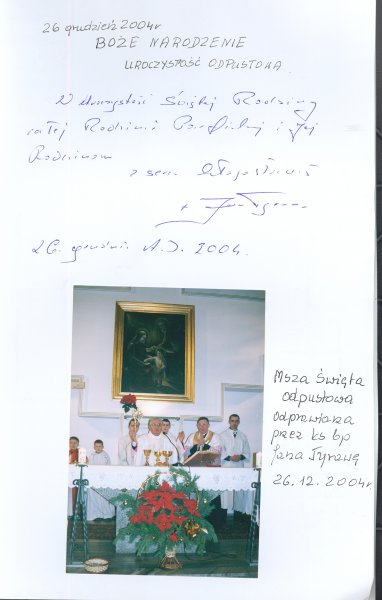 26 grudzień 2004r
BOŻE NARODZENIE
UROCZYSTOŚĆ ODPUSTOWA
W Uroczystość Świętej Rodziny
całej Rodzinie Parafialnej i Jej
Rodzinom
z serca
26. grudnia A.D. 2004.
Msza Święta
odpustowa
odprawiana
przez ks bp
Jana Tyrawę
26.12.2004r